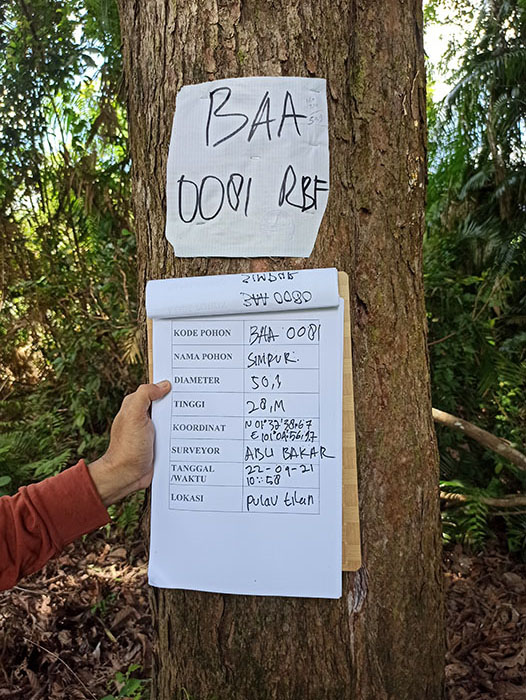 BAA
0081 RBF
BAA 0080
KODE POHON BAA 0081
NAMA POHON SIMPUR.
DIAMETER 50,1
TINGGI 28,M
KOORDINAT N 01°32'38,67
E 101°04'56,17
SURVEYOR ABU BAKAR
TANGGAL 22-09-21
/WAKTU 10:58
LOKASI pulau tilan